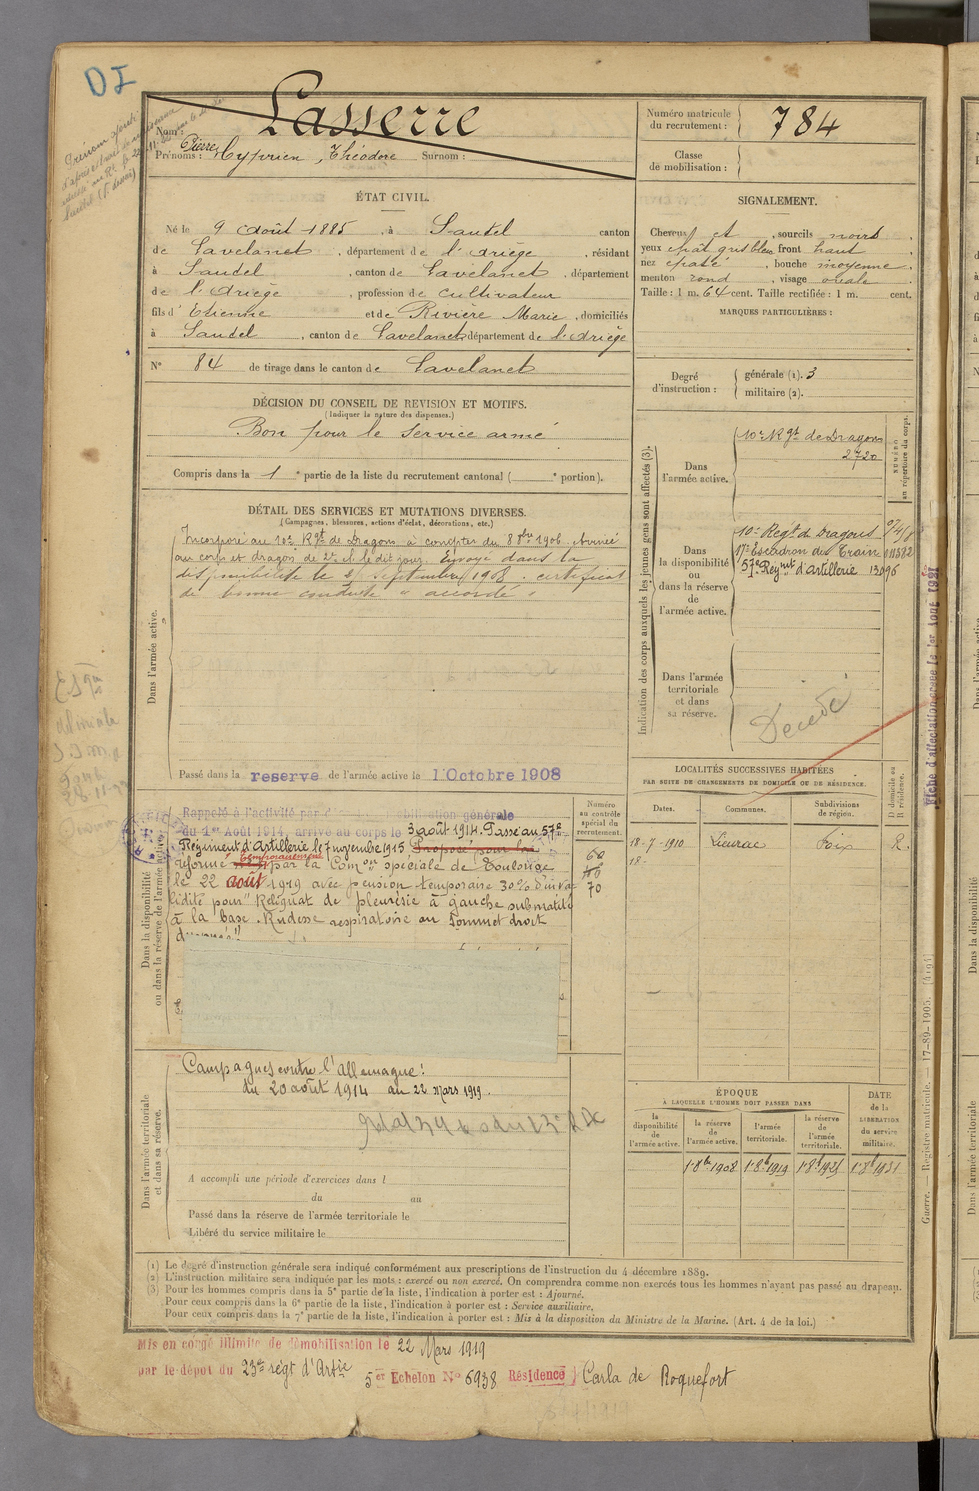 DI
Lasserre
Nom :
Pierre
Prénoms : Cyprien, Théodore Surnom :
Numéro matricule du recrutement : 784
Classe de mobilisation :
ÉTAT CIVIL.
Né le 9 Août 1885, à Sautel canton
de Lavelanet, département de l'Ariège, résidant
à Sautel, canton de Lavelanet, département
de l'Ariège, profession de cultivateur
fils d'Etienne et de Rivière Marie, domiciliés
à Sautel, canton de Lavelanet département de l'Ariège
N° 84 de tirage dans le canton de Lavelanet
DÉCISION DU CONSEIL DE REVISION ET MOTIFS.
(Indiquer la nature des dispenses.)
Bon pour le service armé
Compris dans la 1e partie de la liste du recrutement cantonal ( e portion).
SIGNALEMENT.
Cheveux et, sourcils noirs
yeux chât gris bleu, front haut
nez épaté, bouche moyenne
menton rond, visage ovale
Taille : 1 m. 64 cent. Taille rectifiée : 1 m. cent.
MARQUES PARTICULIÈRES :
Degré d'instruction : générale (1). 3
militaire (2).
DÉTAIL DES SERVICES ET MUTATIONS DIVERSES.
(Campagnes, blessures, actions d'éclat, décorations, etc.)
Dans l'armée active.
Incorporé au 10e Rgt de Dragons à compter du 8 8bre 1906. Arrivé
au corps et dragon de 2e cl. le dit jour. Envoyé dans la
disponibilité le septembre 1908. certificat
de bonne conduite "accordé"
Passé dans la reserve de l'armée active le 1 Octobre 1908
Indication des corps auxquels les jeunes gens sont affectés (3).
NUMÉRO au répertoire du corps.
Dans l'armée active.
10e Rgt de Dragons
2720
Dans la disponibilité ou dans la réserve de l'armée active.
10e Regt de Dragons
17e Escadron du Train 011582
57e Regmnt d'Artillerie 13096
Dans l'armée territoriale et dans sa réserve.
Décédé
LOCALITÉS SUCCESSIVES HABITÉES
PAR SUITE DE CHANGEMENTS DE DOMICILE OU DE RÉSIDENCE.
Dates. Communes. Subdivisions de région. D domicile ou R résidence.
18-7-1910 Lieurac Foix R.
18-
Dans la disponibilité ou dans la réserve de l'armée active
Numéro au contrôle spécial du recrutement.
Rappelé à l'activité par générale
du 1er Août 1914, arrivé au corps le 3 août 1914. Passé au 57e
Régiment d'Artillerie le 7 novembre 1915 Proposé pour la
réforme temporairement par la Comon spéciale de Toulouse
le 22 août 1919 avec pension temporaire 30% d'inva
lidité pour "Reliquat de pleurésie à gauche submatité
à la base. Rudesse respiratoire au sommet droit
60
70
Dans l'armée territoriale et dans sa réserve.
Campagnes contre l'Allemagne :
du 20 août 1914 au 22 mars 1919.
A accompli une période d'exercices dans l
du au
Passé dans la réserve de l'armée territoriale le
Libéré du service militaire le
ÉPOQUE
À LAQUELLE L'HOMME DOIT PASSER DANS
la disponibilité de l'armée active. la réserve de l'armée active. l'armée territoriale. la réserve de l'armée territoriale.
DATE de la LIBÉRATION du service militaire.
1 8bre 1908 1 8b 1919 1 8b 1925 1 8b 1931
(1) Le degré d'instruction générale sera indiqué conformément aux prescriptions de l'instruction du 4 décembre 1889.
(2) L'instruction militaire sera indiquée par les mots : exercé ou non exercé. On comprendra comme non exercés tous les hommes n'ayant pas passé au drapeau.
(3) Pour les hommes compris dans la 5e partie de la liste, l'indication à porter est : Ajourné.
Pour ceux compris dans la 6e partie de la liste, l'indication à porter est : Service auxiliaire.
Pour ceux compris dans la 7e partie de la liste, l'indication à porter est : Mis à la disposition du Ministre de la Marine. (Art. 4 de la loi.)
Mis en congé illimité de démobilisation le 22 Mars 1919
par le dépôt du 23e régt d'Artie 5er Echelon N° 6938 Résidence } Carla de Roquefort
Guerre. — Registre matricule. — 17-89-1905.